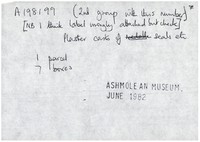 A 198 199 (2nd group with this number)
[NB I think label wrongly attached but check]
Plaster casts of seals etc
1 parcel
7 boxes
ASHMOLEAN MUSEUM,
JUNE, 1982